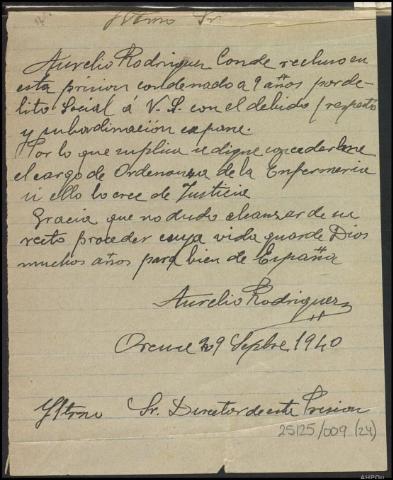 Yltmo Sr.
Aurelio Rodriguez Conde recluso en
esta prision condenado a 9 años por de-
lito Social á V. S. con el debido respeto
y subordinación expone.
Por lo que suplica se digne concederle
el cargo de Ordenanza de la Enfermeria
si ello lo cree de Justicia
Gracia que no dudo alcanzar de su
recto proceder cuya vida guarde Dios
muchos años para bien de España
Aurelio Rodriguez
Orense 29 Septbre 1940
Yltmo Sr. Director de esta Prision
25125/009 (24)
AHPOu